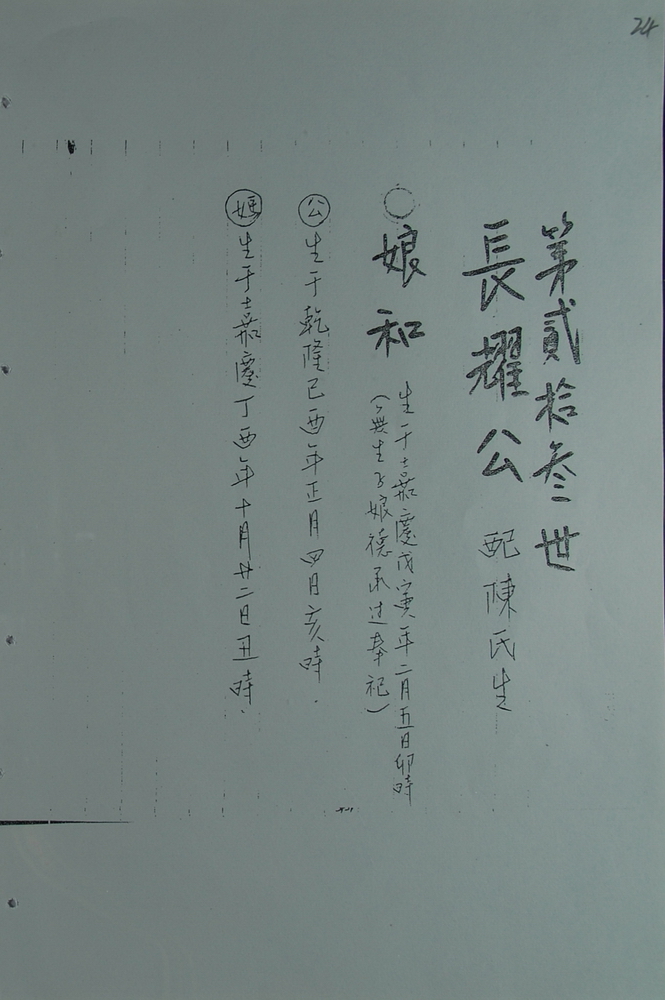 24
第貳拾叁世
長耀公 配陳氏生
○娘和 生于嘉慶戊寅年二月五日卯時
（無生子娘德承过奉祀）
公 生于乾隆己酉年正月四日亥時.
媽 生于嘉慶丁酉年十月廿二日丑時.